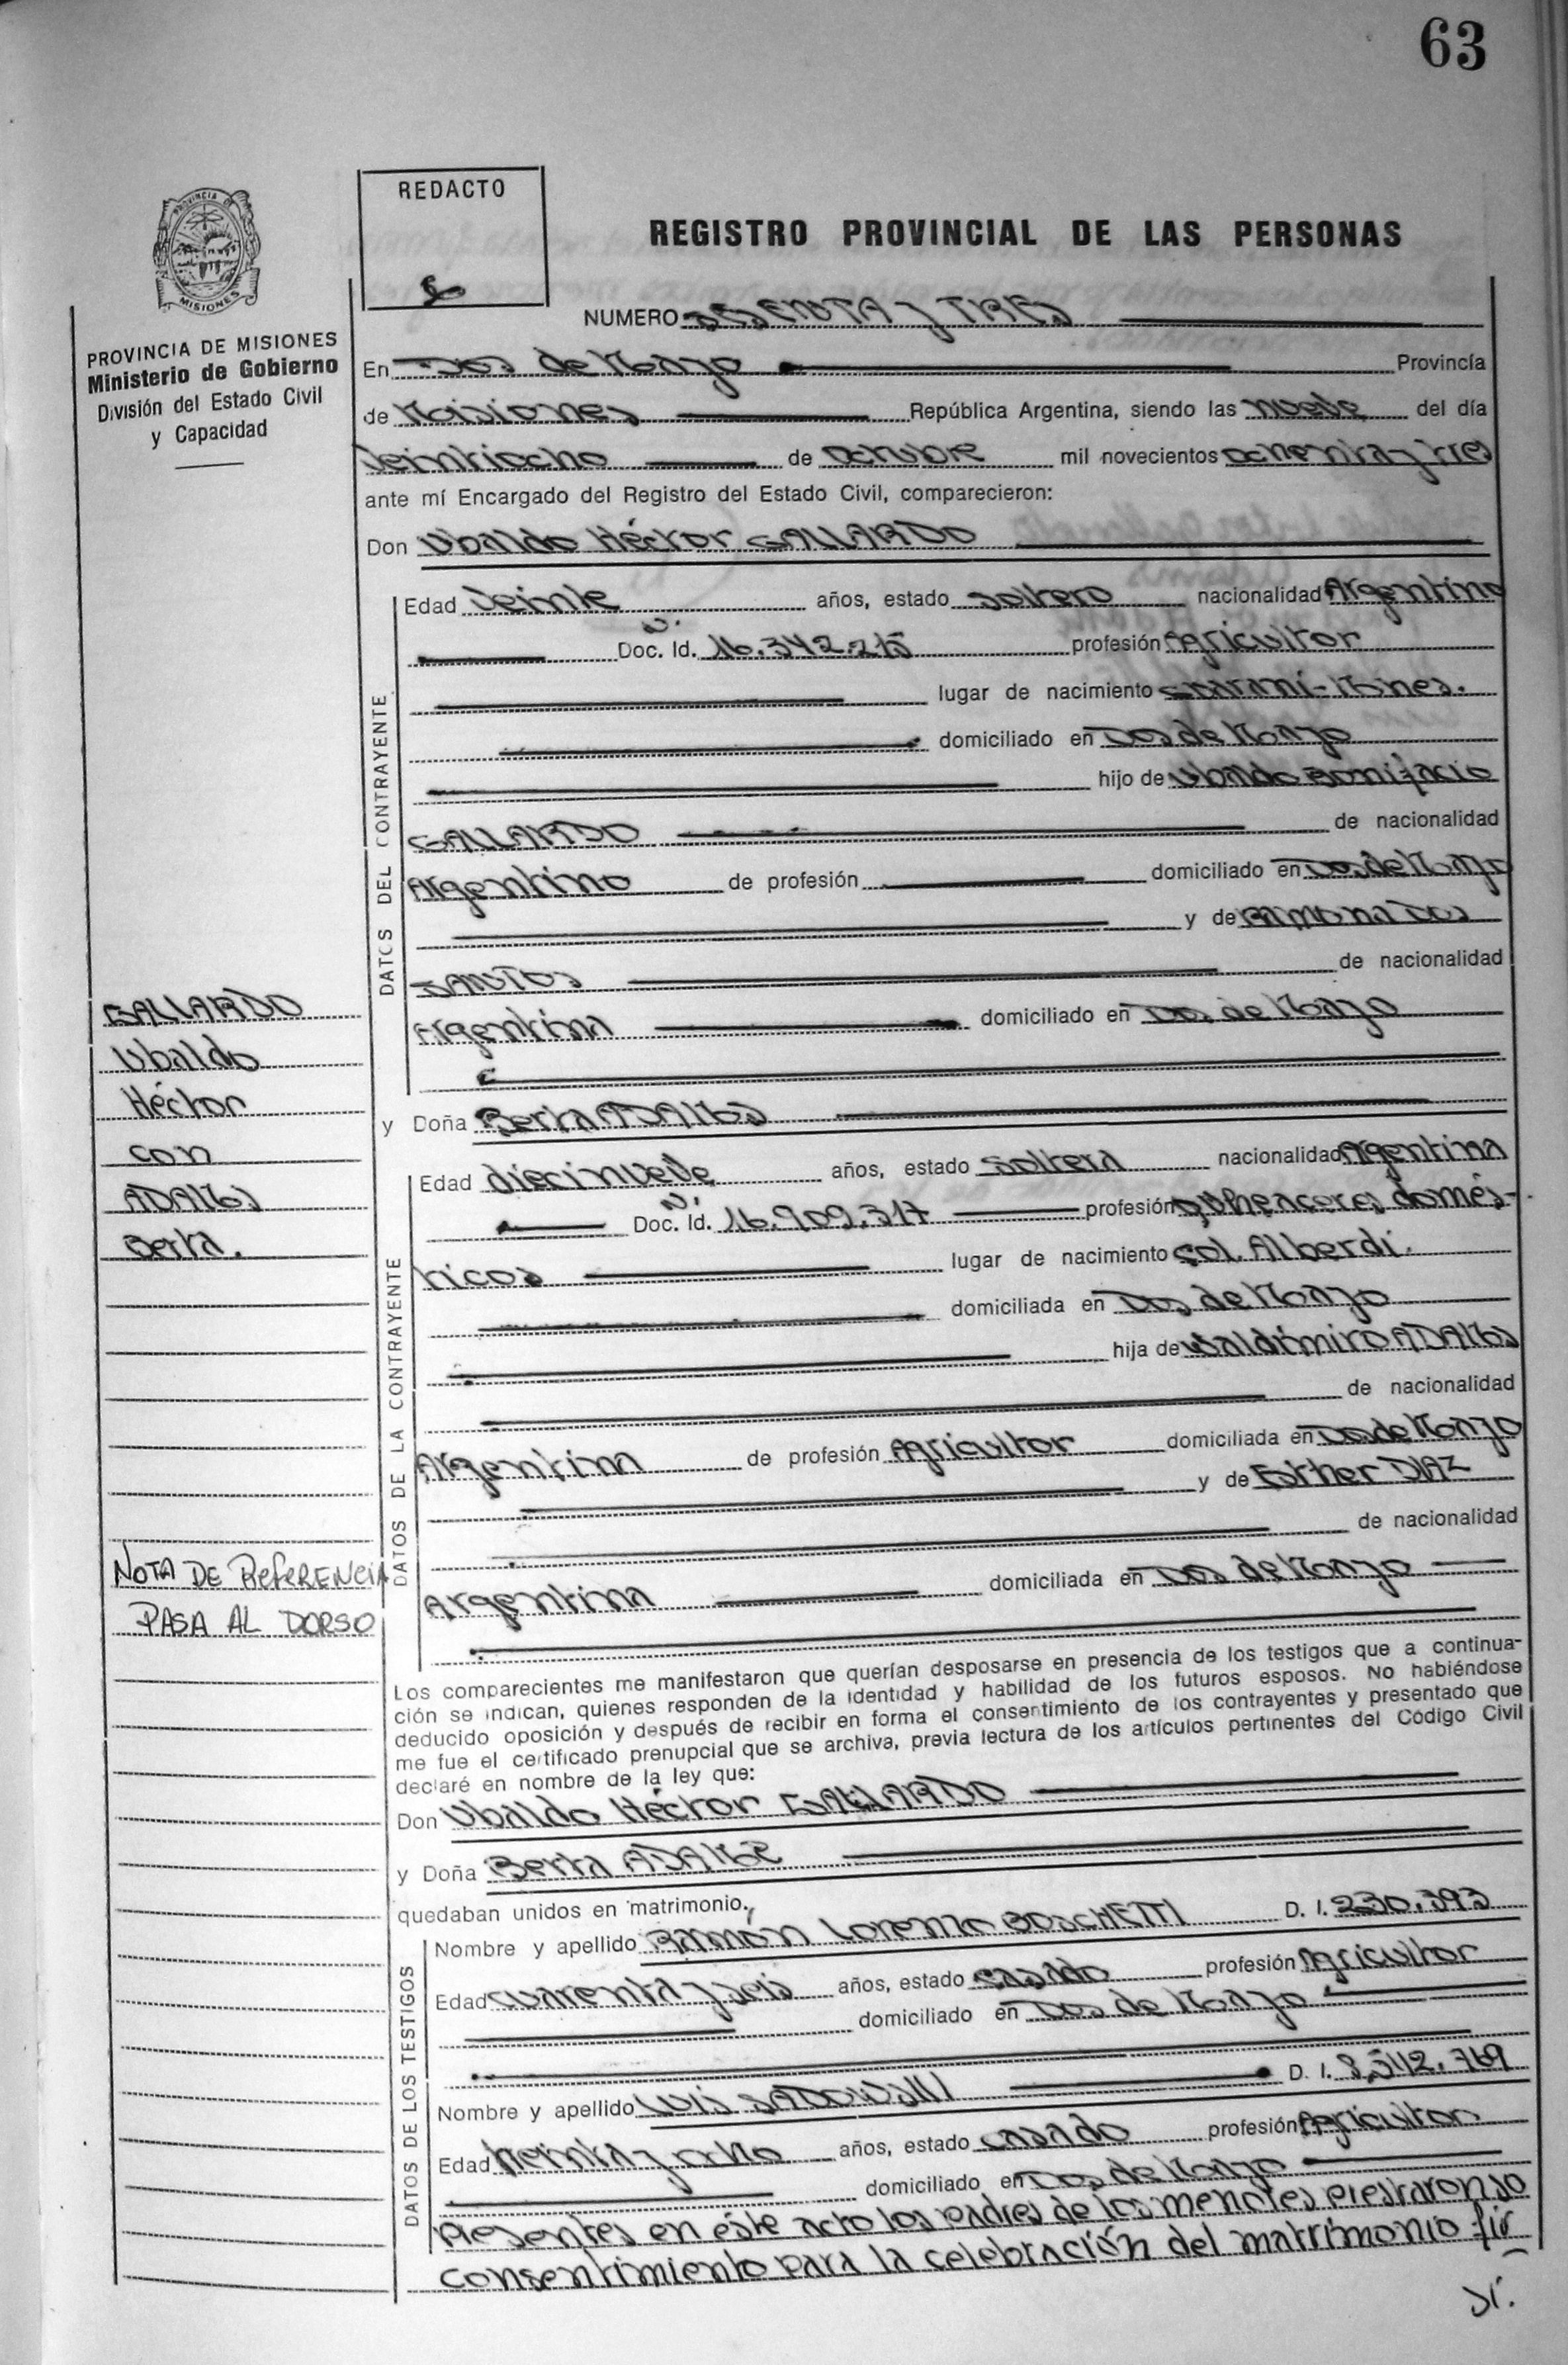 63
REDACTO
REGISTRO PROVINCIAL DE LAS PERSONAS
PROVINCIA DE MISIONES
Ministerio de Gobierno
División del Estado Civil
y Capacidad
NUMERO SESENTA y TRES
En Dos de Mayo Provincia
de Misiones República Argentina, siendo las nueve del día
Veintiocho de octubre mil novecientos ochenta y tres
ante mí Encargado del Registro del Estado Civil, comparecieron:
Don Ubaldo Héctor GALLARDO
DATOS DEL CONTRAYENTE
Edad Veinte años, estado soltero nacionalidad Argentino
Doc. Id. 16.342.215 profesión Agricultor
lugar de nacimiento Guaraní-Mnes.
domiciliado en Dos de Mayo
hijo de Ubaldo Bonifacio
GALLARDO de nacionalidad
Argentino de profesión domiciliado en Dos de Mayo
y de RAMONA DOS
SANTOS de nacionalidad
Argentina domiciliado en Dos de Mayo
GALLARDO
Ubaldo
Héctor
con
ADAMS
Berta.
y Doña Berta ADAMS
DATOS DE LA CONTRAYENTE
Edad diecinueve años, estado soltera nacionalidad Argentina
Doc. Id. 16.909.317 profesión quehaceres domés-
ticos lugar de nacimiento Col. Alberdi.
domiciliada en Dos de Mayo
hija de Waldimiro ADAMS
de nacionalidad
Argentina de profesión Agricultor domiciliada en Dos de Mayo
y de Esther DIAZ
de nacionalidad
Argentina domiciliada en Dos de Mayo
NOTA DE REFERENCIA
PASA AL DORSO
Los comparecientes me manifestaron que querían desposarse en presencia de los testigos que a continua-
ción se indican, quienes responden de la identidad y habilidad de los futuros esposos. No habiéndose
deducido oposición y después de recibir en forma el consentimiento de los contrayentes y presentado que
me fue el certificado prenupcial que se archiva, previa lectura de los artículos pertinentes del Código Civil
declaré en nombre de la ley que:
Don Ubaldo Héctor GALLARDO
y Doña Berta
quedaban unidos en matrimonio.
DATOS DE LOS TESTIGOS
Nombre y apellido RAMÓN Lorenzo BOSCHETTI D. I. 230.393
Edad cuarenta y seis años, estado casado profesión Agricultor
domiciliado en Dos de Mayo
Nombre y apellido LUIS D. I. 8.512.769
Edad treinta y ocho años, estado casado profesión Agricultor
domiciliado en Dos de Mayo
Presentes en éste acto los padres de los menores prestaron so
consentimiento para la celebración del matrimonio fir